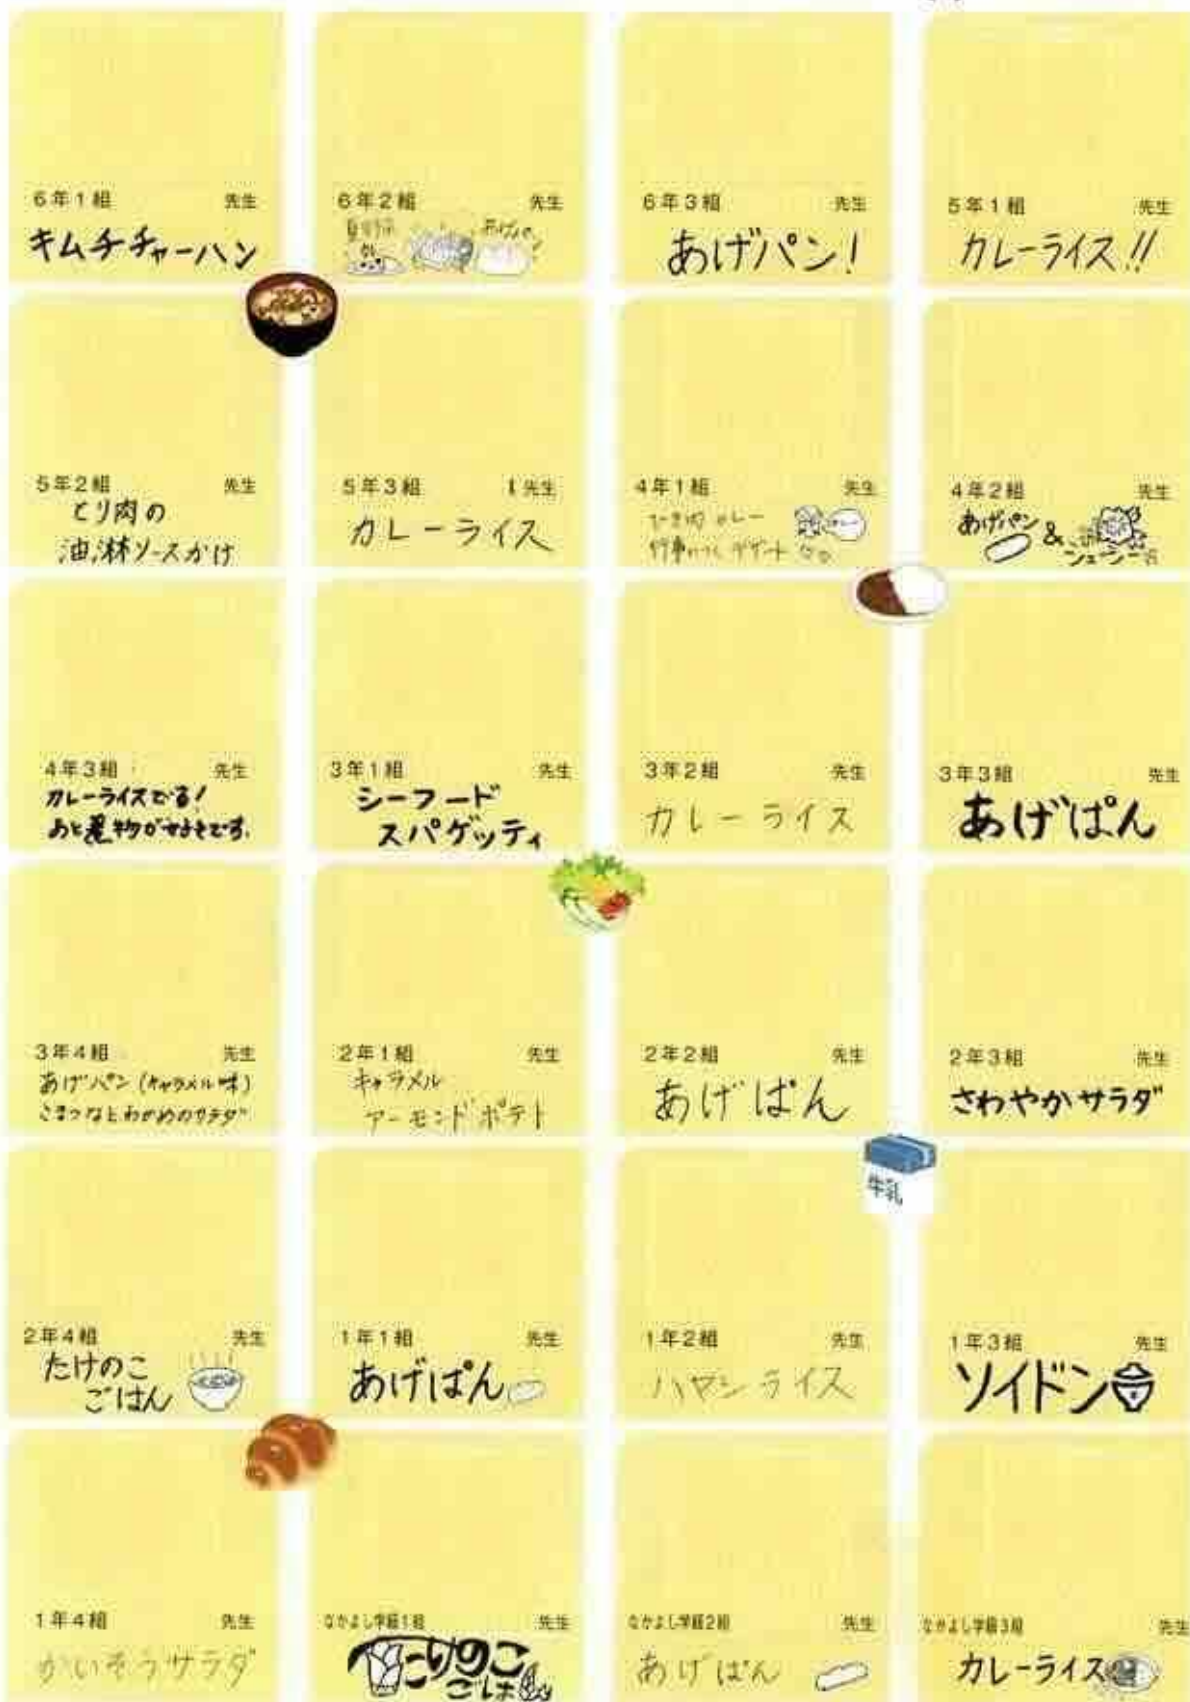 6年1組 先生
キムチチャーハン
6年2組 先生
あげパン
6年3組 先生
あげパン!
5年1組 先生
カレーライス!!
5年2組 先生
とり肉の
油淋ソースかけ
5年3組 先生
カレーライス
4年1組 先生
ひき肉カレー
行事につくデザート
4年2組 先生
あげパン
&
シューシー
4年3組 先生
カレーライスでる!
あと煮物がすきです。
3年1組 先生
シーフード
スパゲッティ
3年2組 先生
カレーライス
3年3組 先生
あげぱん
3年4組 先生
あげパン(キャラメル味)
こまつなとわかめのサラダ
2年1組 先生
キャラメル
アーモンドポテト
2年2組 先生
あげぱん
2年3組 先生
さわやかサラダ
牛乳
2年4組 先生
たけのこ
ごはん
1年1組 先生
あげぱん
1年2組 先生
ハヤシライス
1年3組 先生
ソイドン
1年4組 先生
かいそうサラダ
なかよし学級1組 先生
たけのこ
ごはん
なかよし学級2組 先生
あげぱん
なかよし学級3組 先生
カレーライス